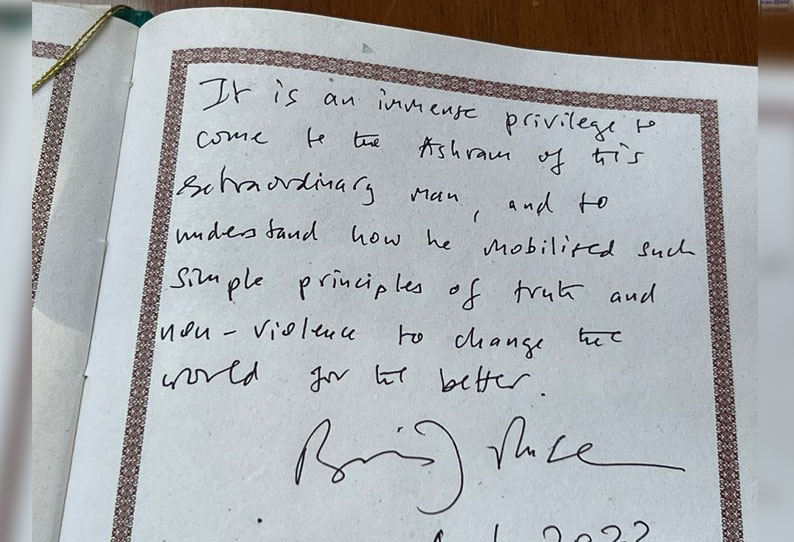 It is an immense privilege to
come to the Ashram of this
extraordinary man, and to
understand how he mobilised such
simple principles of truth and
non-violence to change the
world for the better.
2022